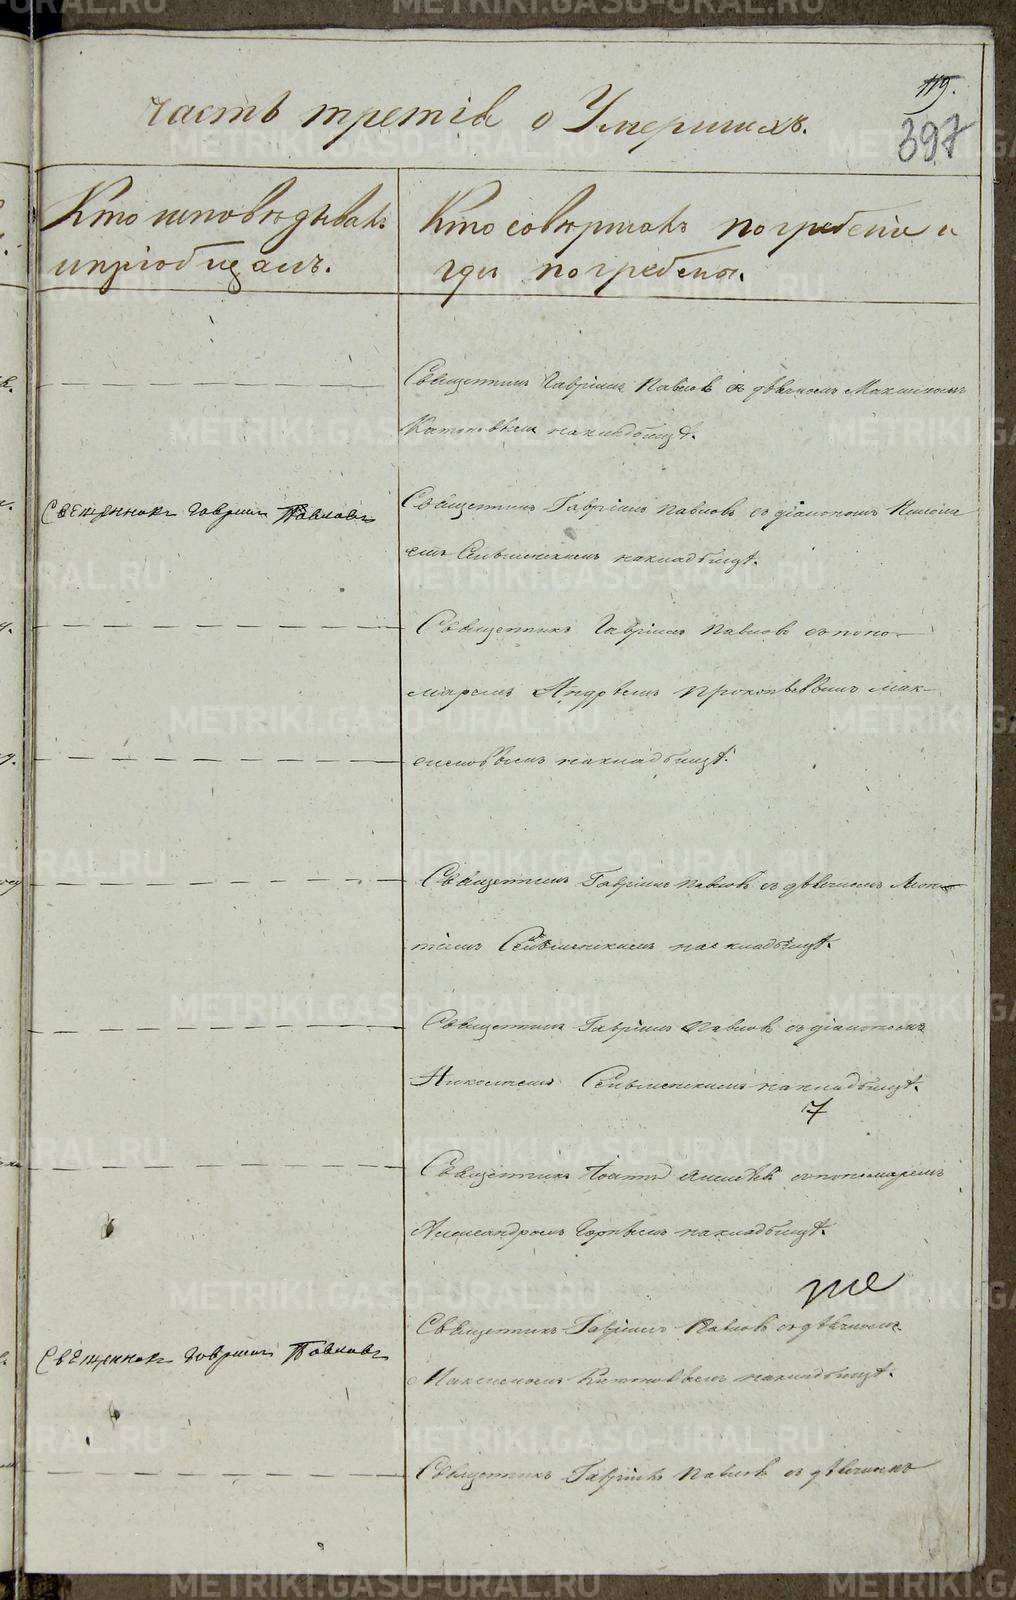 119.
397
часть третія о Умершихъ.
Кто исповѣдывалъ
и пріобщалъ.
Кто совершалъ погребеніе и
гдѣ погребены.
Священникъ Гавріилъ Павловъ съ дьячкомъ Максимомъ
на кладбищѣ.
Священникъ Гавриилъ Павловъ
Священникъ Гавріилъ Павловъ съ діакономъ Никола
емъ на кладбищѣ.
Священникъ Гавріилъ Павловъ съ поно-
маремъ Андреемъ Прокопьевымъ Мак-
симовымъ на кладбищѣ.
Священникъ Гавріилъ Павловъ съ дьячкомъ Леон-
тіемъ на кладбищѣ.
Священникъ Гавріилъ Павловъ съ діакономъ
Николаемъ на кладбищѣ.
7
Священникъ съ пономаремъ
Александромъ на кладбищѣ.
Священникъ Гавриилъ Павловъ
Священникъ Гавріилъ Павловъ съ дьячкомъ
Максимомъ на кладбищѣ.
Священникъ Гавріилъ Павловъ съ дьячкомъ
METRIKI.GASO-URAL.RU